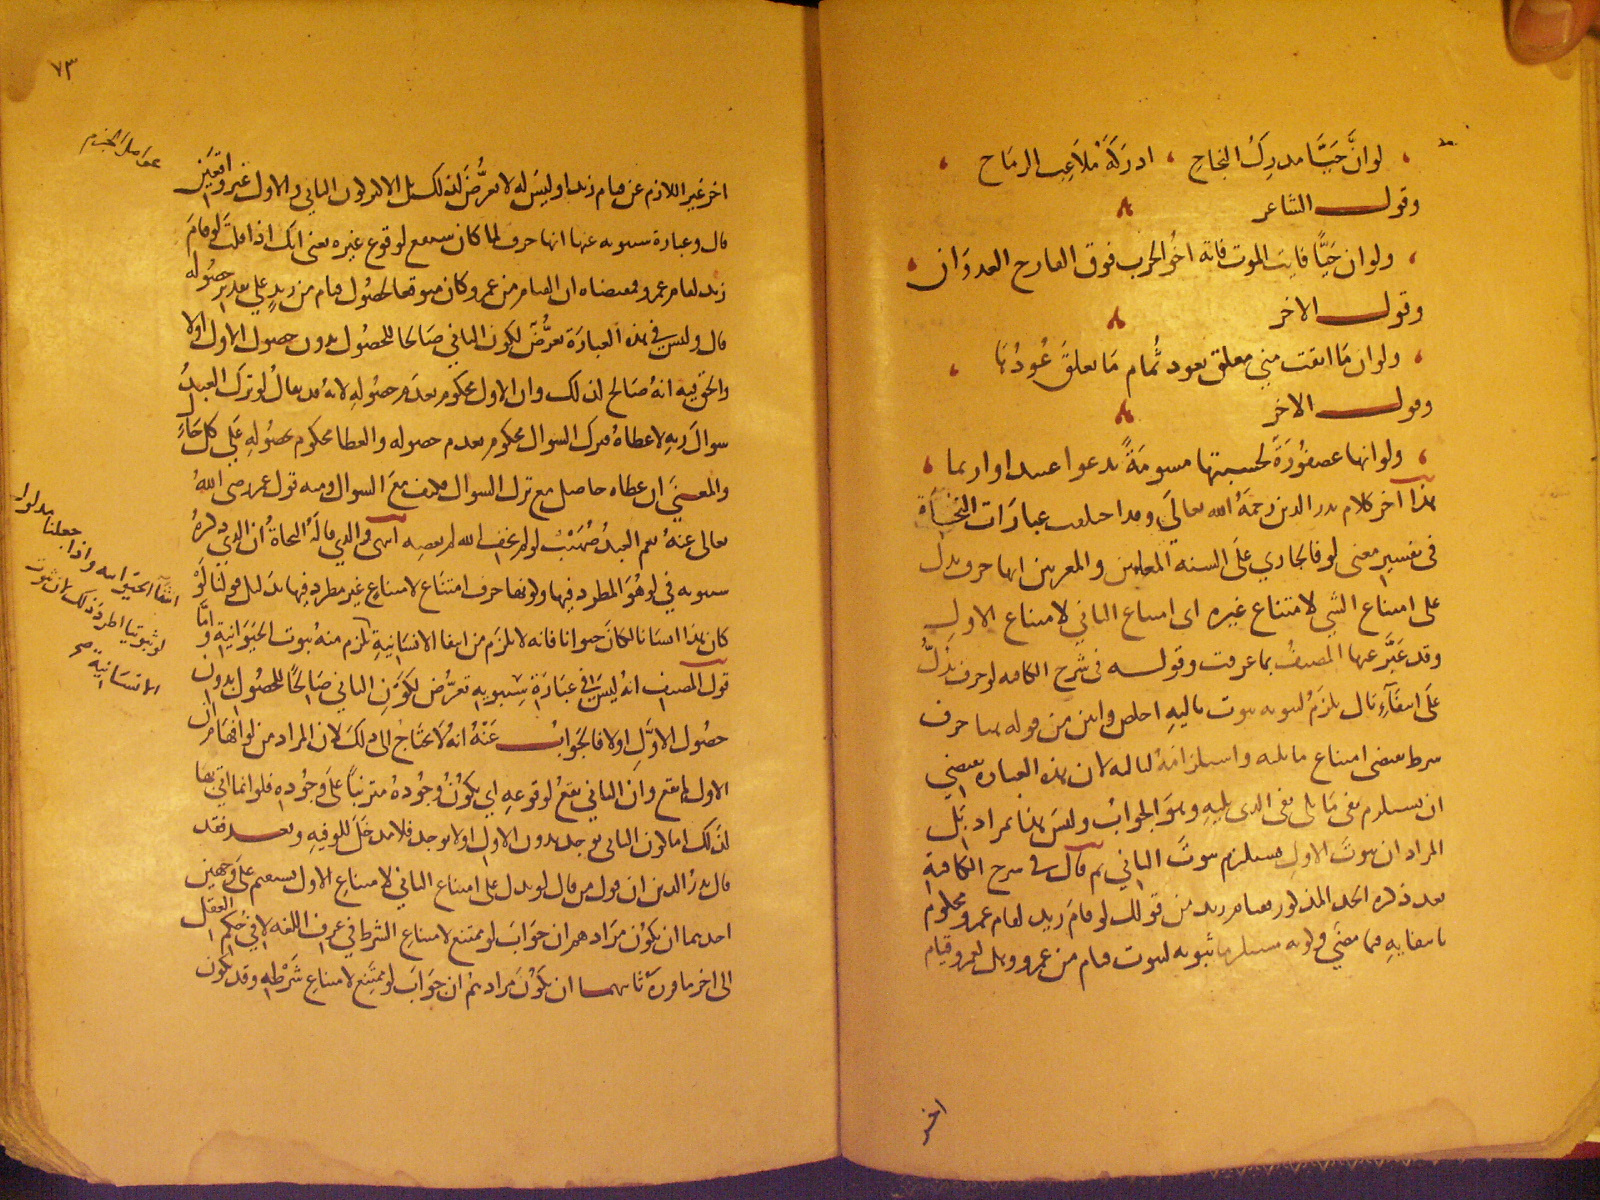 لو انَّ حَيًّا مدرِكُ النجاحِ ادرَكَهُ مُلاَعِبُ الرمَاح
وقول الشاعر
ولو ان حَيًّا فايت الموت فاته اخُو الحرب فوق القارح العدوَان
وقول الاخر
ولو ان مَا ابقت مِنِي معلق بعود ثُمام مَا تعلقَ عُودُهَا
وقول الاخر
ولو انها عصفُورَةً لحسبتها مسومَةً تدعوا عبيدا وازنما
هذا آخر كلام بدر الدين رحمَهُ الله تعالَي وقد اختلفت عبارَات النُّحَاة
في تفسير معنى لو فالجاري علَى السنة المعلمين والمعربين انها حرف يدل
على امتناع الشي لامتناع غيره اى امتناع الثاني لامتناع الاول
وقد عَبَّر عنها المصنفُ بما عرفت وقوله في شَرح الكافيه لو حرف يدُلُّ
علَى انتفَآءِ تال يلزَمُ لثبوته ثبوت تاليهِ اخلص وابين من قوله بها حرف
شرط يقتضى امتناع ما يليه واستلزامَهُ لتاليه لان هذه العباره تقتضي
ان يستلزم نفى مَا يلى نفى الذى يليهِ وهوَ الجوابُ وليسَ هذا بمراد بَل
المراد ان ثبوتَ الاولِ مستلزم ثبوتَ الثاني ثم قالَ في شرح الكافية
بعد ذكره الحد المذكور فقيام زيد من قولك لو قامَ زيد لقام عمرو محكوم
بانتفايهِ فيما مضَي وكونه مستلزما ثبوته لثبوت قيام من عمرو وهل لعمرو قيام
اخر
٧٣
عوَامل الجزم
اخر غير اللازم عن قيام زيد او ليسَ له لا تعرُّضَ لذلك بل الاكثر كون الثاني والاول غير واقعَين
قال وعبارة سيبويه عنها انها حرف لما كان سيقع لوقوع غيره يعنى انك اذا قلتَ لو قامَ
زيد لقام عمرو فمقتضاه ان القيام من عمرو كان متوقعا لحصُول قيام من زيدٍ علي تقدير حصُوله
قال وليسَ في هذه العبارَة تعرُّضٌ لكون الثاني صَالحَا للحصُول بدون حصول الاول او لا
والحق فيه انهُ صَالح لذلك وان الاول محكوم بعدَم حصُولهِ لانهُ قد يقالُ لو تركَ العبدُ
سوالَ ربهِ لاعطاهُ فترك السوال محكوم بعدم حصوله والعطا محكوم بحصُولهِ عَلَي كل حَال
والمعنيَ ان عطاه حاصل مع ترك السوال فكيف معَ السوال ومنه قول عمر رضى اللهُ
تعالى عنهُ نعم العبدُ صُهَيْبٌ لو لم يخف الله لم يعصِه انتهى والذي قالَهُ النحاةُ ان الذي ذكرهُ
سيبويه في لو هُوَ المطرد فيها وكونها حرف امتنَاع لامتناعٍ غير مطرد فيها بدَليل قولنا لَوْ
كان هذا انسَانا لكانَ حيوانا فانه لا يلزم من انتفا الانسَانيةِ يلزم منهُ ثبوت الحيَوَانيةِ وامَّا
قول المصنف انهُ ليسَ في عبَارَةِ سيبويهِ تعرُّض لكوَنِ الثاني صَالحًا للحصُول بدون
حصُول الاوَّلِ او لا فالجَوابُ عَنْهُ انهُ لا يحتَاجُ الى ذلكَ لان المراد من لو افهَام ان
الاول لم يقع وان الثاني يقعُ لوقوعهِ اي يكُونُ وجُودهُ مترتباً علَى وجُوده فلو انما اتي بها
لذَلك اما كون الثانى يوجد بدون الاول او لا يوجد فلا مدخَلَ للو فيهِ وبعد فقد
قال بدرُ الدين ان قول من قال لو يدل على امتناع الثاني لامتناع الاول يستقيم علَى وَجهين
احدهما ان يكُون مرَادهم ان جوَابَ لو ممتنع لامتناعِ الشرط في عرف اللغه لا في حُكم العقل
الى اخر ما قررَهُ ثانيهما ان يكُونَ مرَادهُم ان جَوَابَ لو ممتَنع لامتناعِ شَرْطهِ وقد يكُون
انتفآ الحيَوانيه واذا جعلنا مدلول
لو ثبوتيا اطرد ذلك لان ثبوت
الانسَانية صح